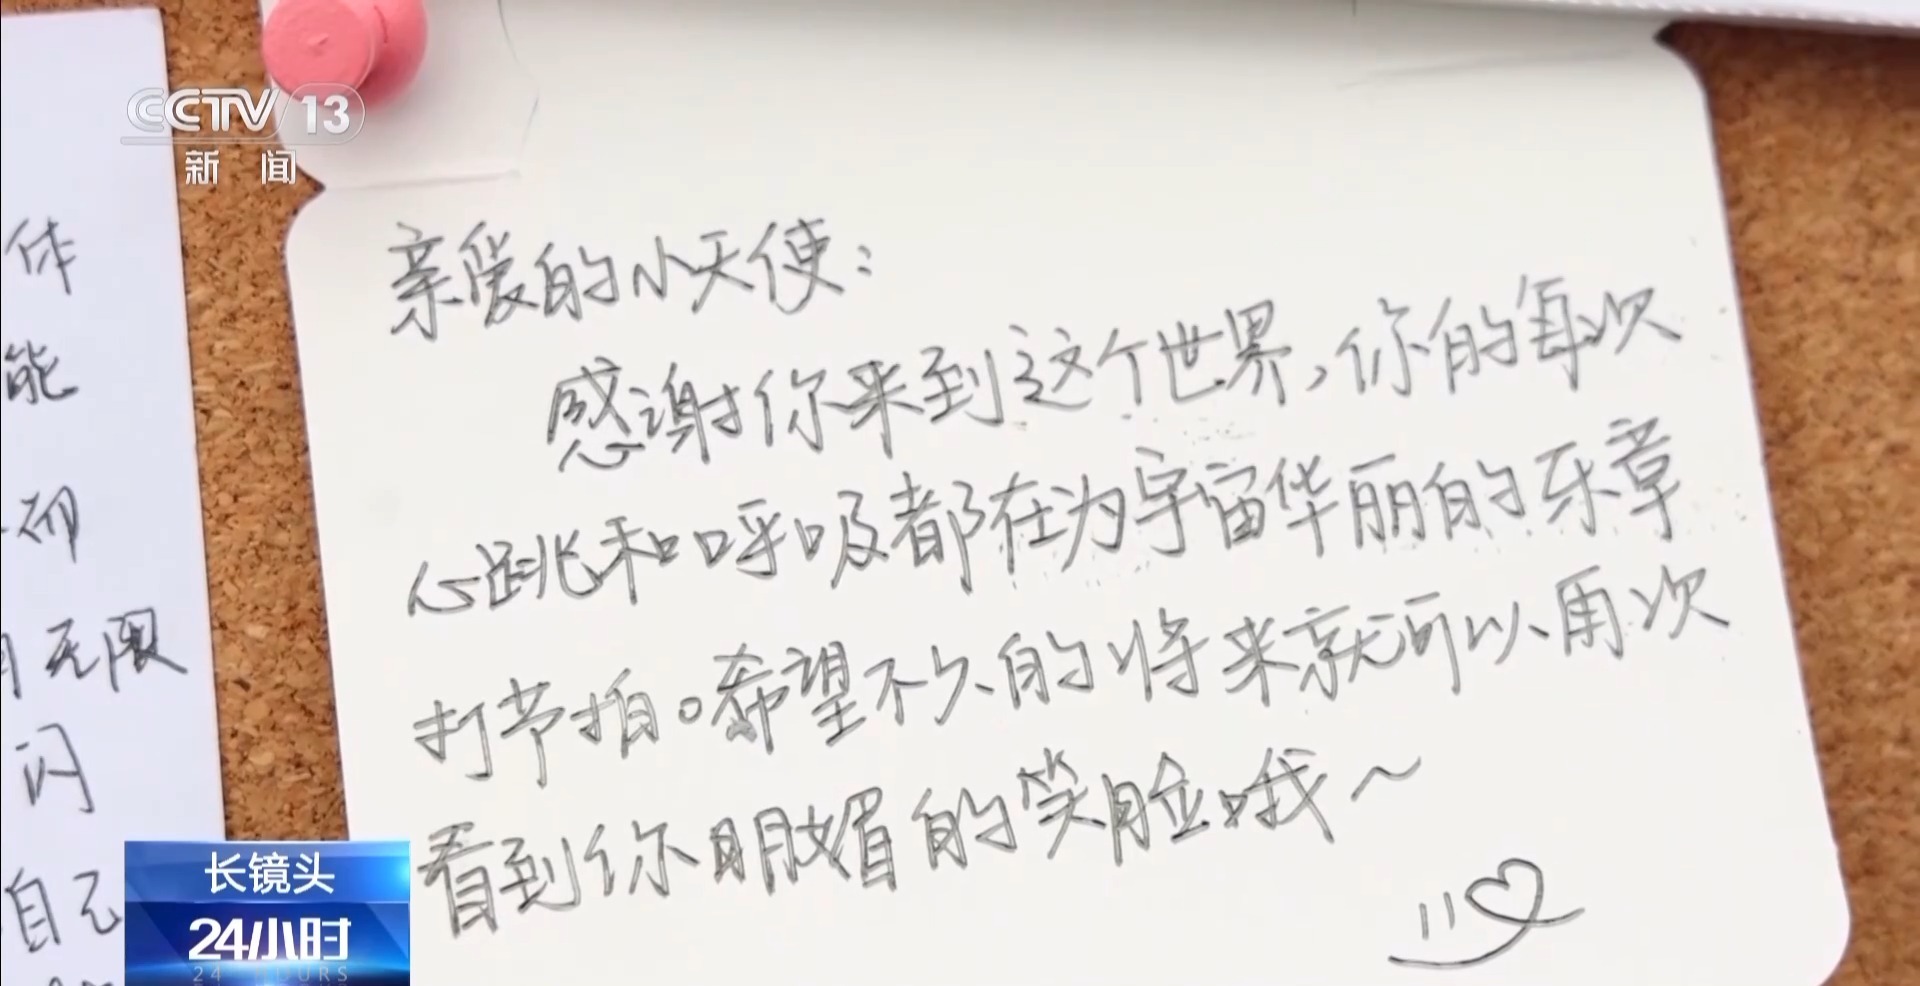 CCTV 13
新闻
体
能
切
无限
闪
自己
亲爱的小天使：
感谢你来到这个世界，你的每次
心跳和呼吸都在为宇宙华丽的乐章
打节拍。希望不久的将来就可以再次
看到你明媚的笑脸哦～
长镜头
24小时
24 HOURS